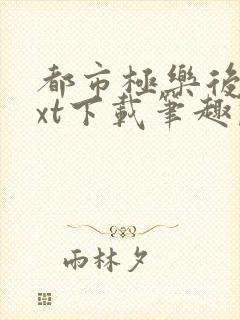 都市極樂後
xt下載筆趣
雨林夕